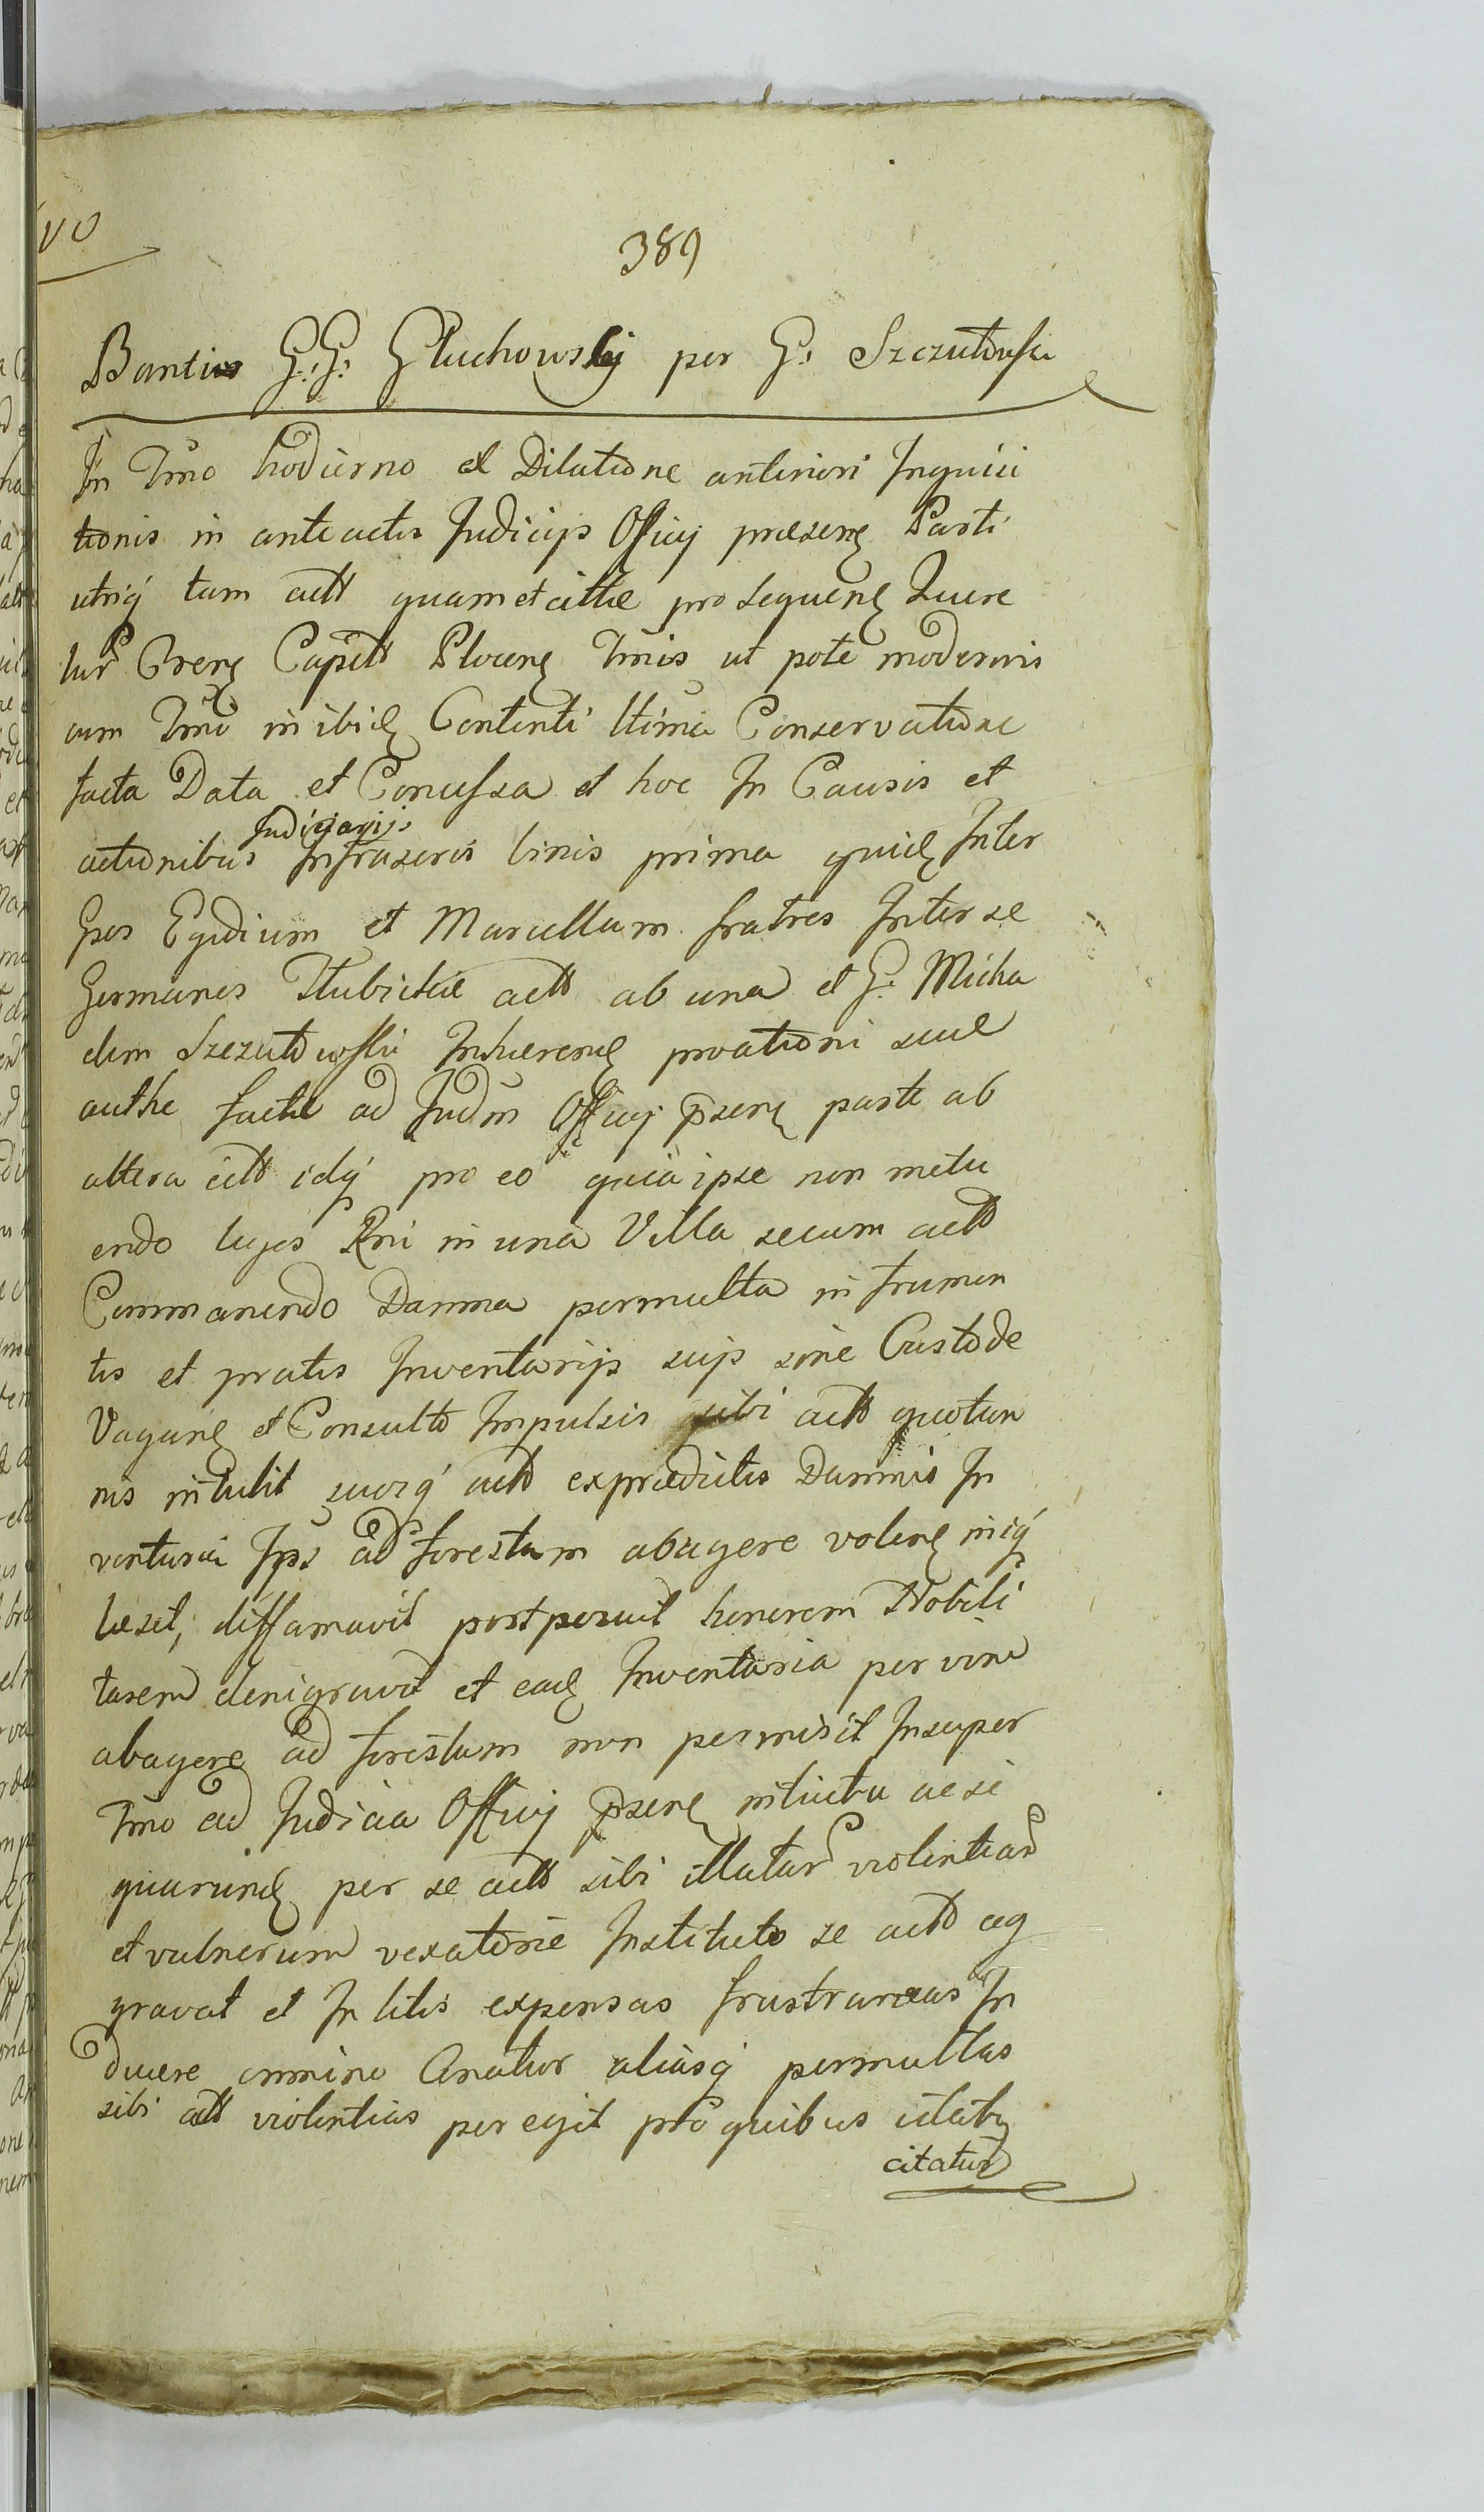 389
Bantio G: G: Głuchowskÿ per G: Szczutowski
In Tmo hodierno ex Dilatione anteriori Inquisi
tionis in anteactis Judicijs Officij praesen Parti
utriq tam actt quam et cittae prosequen Quere
lar Gren Capitt Plocen Tmis ut pote modernis
cum Tmo in ibid Contenti ltima Conservatione
facta Data et Concessa et hoc In Causis et
Judiciarijs
actionibus Infrascris binis prima quid Inter
Gos Egidium et Marcellum fratres Inter se
Germanos actt ab una et G: Micha
elem Szczutowski Inhaeren provationi suae
authe factae ad Judm Officij psen parte ab
altera citt idq pro eo quia ipse non metu
endo leges Rni in una Villa secum actt
Commanendo Damna permulta in frumen
tis et pratis Inventarijs suijs sine Custode
Vagan et Consulto Impulsis sibi actt quotan
nis intulit suorq actt ex praedictis Damnis In
ventaria Ips ad forestam abagere volen
laesit, diffamavit postposuit honorem Nobili
tarem denigravit et ead Inventaria per vim
abagere ad forestam non permisit Insuper
Tmo ad Judicia Officij psen intuitu aesi
quarund per se actt sibi illatar violentiar
et vulnerum vexatorie Instituto se actt ag
gravat et In litis expensas frustraneas In
ducere omnino Conatur aliasq permultas
sibi actt violentias peregit pro quibus
citatur